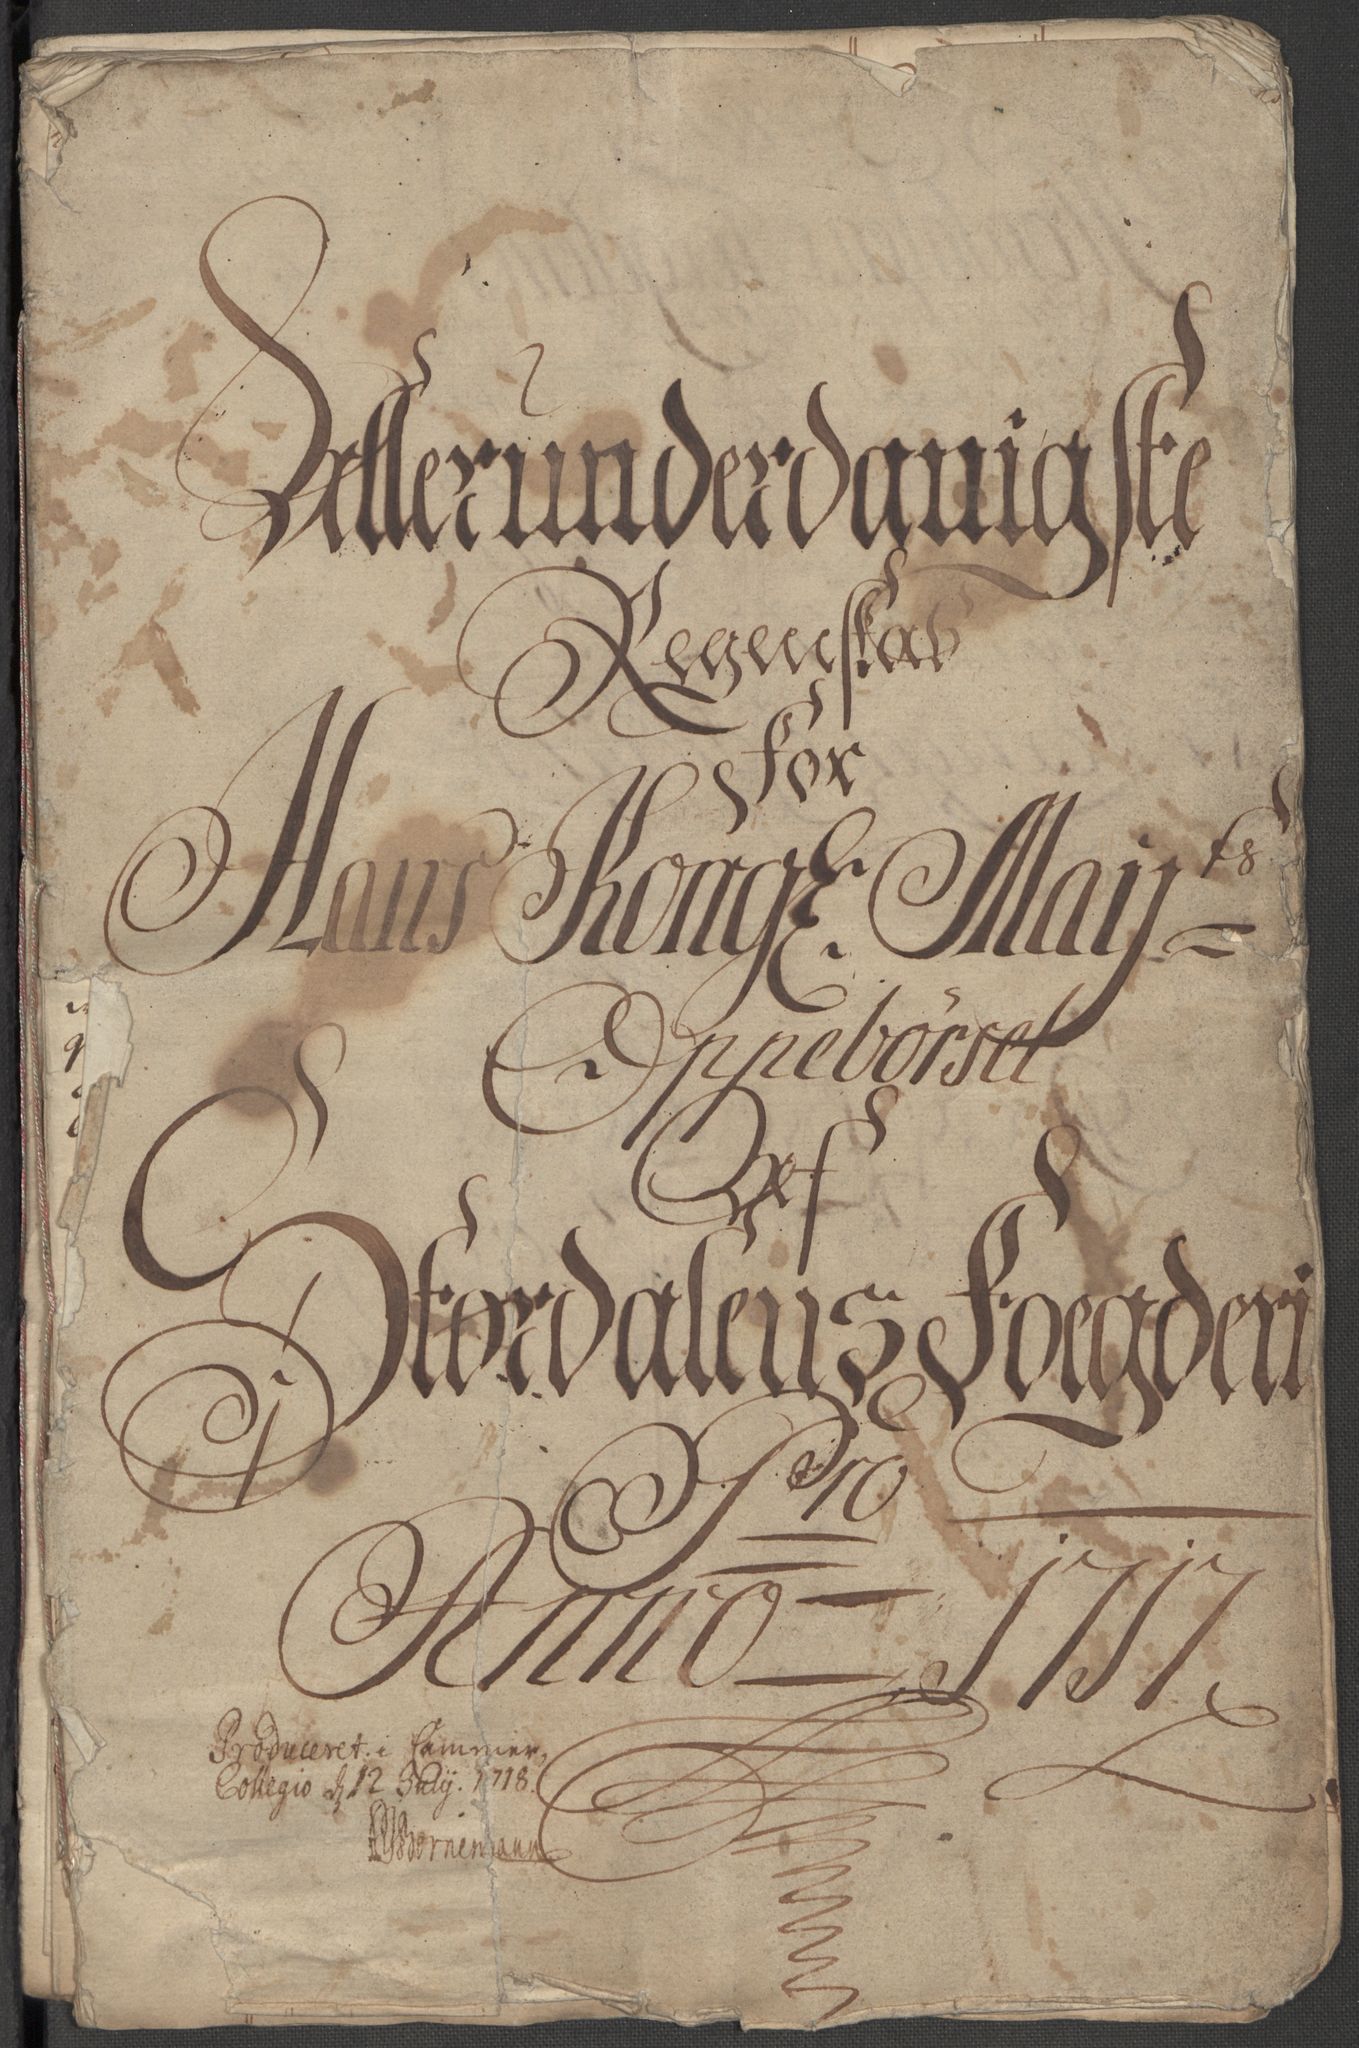 Allerunderdanigste
Regenskab
for
Hans Kongl. Maijts
Oppebørsel
Af
Stordalens Foegderi
Pro
Anno 1717
Produceret i Cammer
Collegio d 12 Julij. 1718.
Bornemann